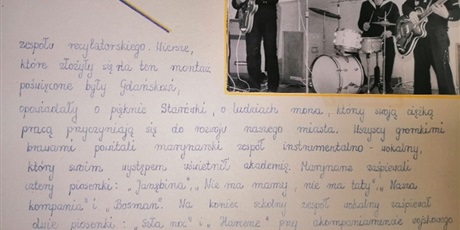 zespołu recytatorskiego. Wiersze,
które złożyły się na ten montaż
poświęcone były Gdańskowi,
opowiadały o pięknie Starówki, o ludziach morza, którzy swoją ciężką
pracą przyczyniają się do rozwoju naszego miasta. Wszyscy gromkimi
brawami powitali marynarski zespół instrumentalno-wokalny,
który swoim występem uświetnił akademię. Marynarze zaśpiewali
cztery piosenki: „Jarzębina", „Nie ma mamy, nie ma taty", „Nasza
kompania" i „Bosman". Na koniec szkolny zespół wokalny zaśpiewał
dwie piosenki: „Szła noc" i „ " przy akompaniamencie wojskowego